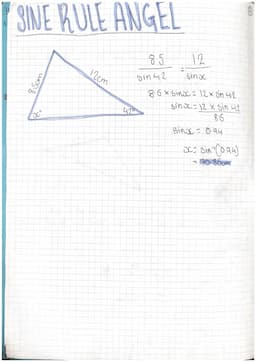 SINE RULE ANGEL
8.5cm
12cm
x°
42°
8.5 12
sin 42 = sinx
8.5 × sinx = 12 × sin 42
sinx = 12 × sin 42
8.5
sinx = 0.94
x = sin⁻¹(0.94)
=